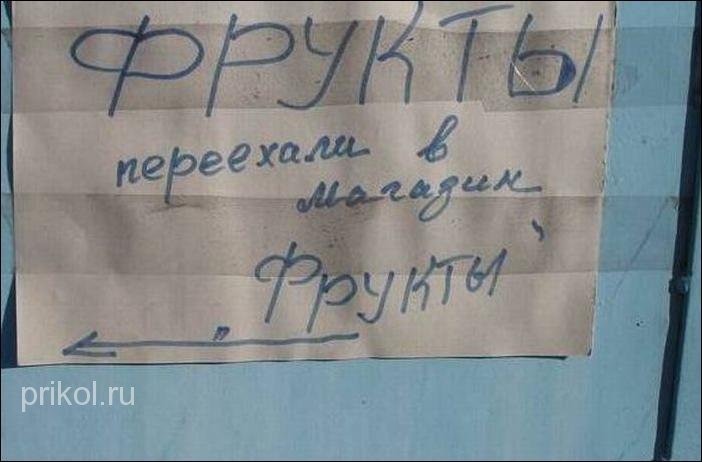 ФРУКТЫ
переехали в
магазин
„Фрукты"
prikol.ru